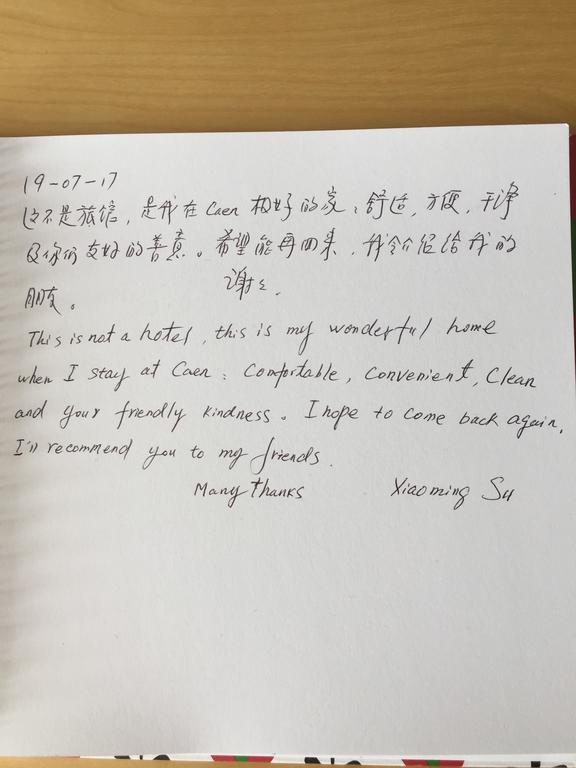 19-07-17
这不是旅馆，是我在 Caen 极好的家：舒适，方便，干净
及你们友好的善真。希望能再回来，我会介绍给我的
朋友。 谢谢.
This is not a hotel, this is my wonderful home
when I stay at Caen: Comfortable, convenient, Clean
and your friendly kindness。 I hope to come back again.
I'll recommend you to my friends.
Many thanks Xiaoming Su